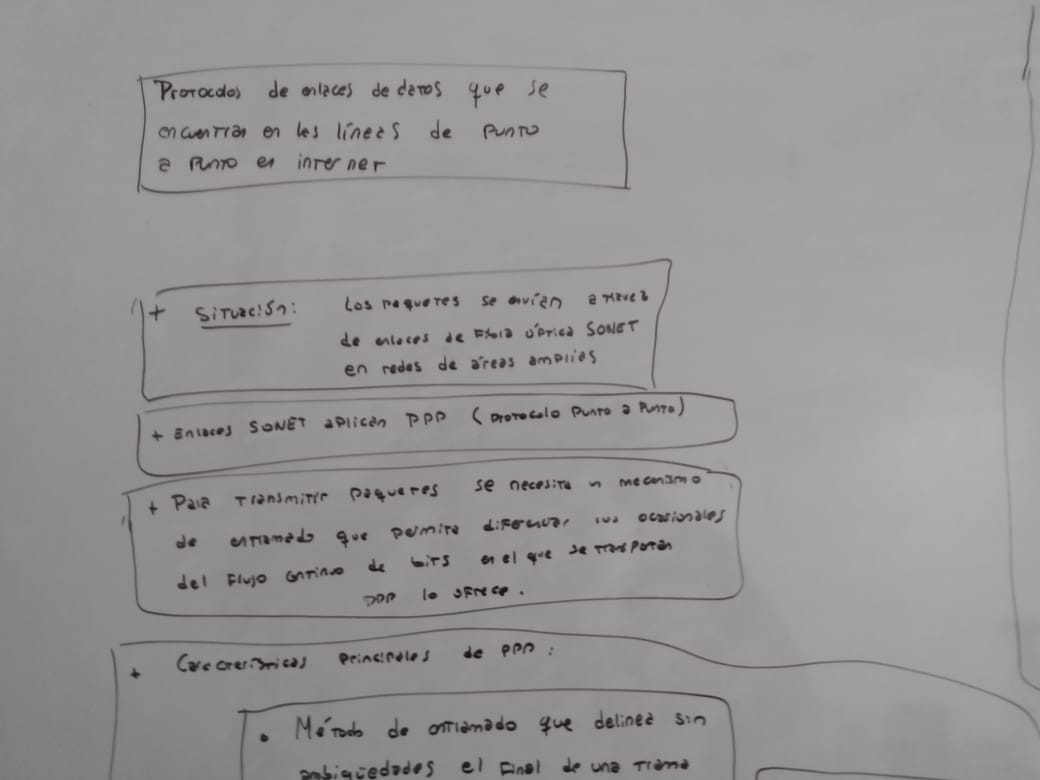 Protocolos de enlaces de datos que se
encuentran en las líneas de punto
a punto en internet
+ Situación: Los paquetes se envían a travez
de enlaces de Fibra óptica SONET
en redes de áreas amplias
+ Enlaces SONET aplican PPP (Protocolo Punto a Punto)
+ Para transmitir paquetes se necesita un mecanismo
de entramado que permita diferenciar los ocasionales
del Flujo continuo de bits en el que se transportan
PPP lo ofrece.
+ Características principales de PPP:
• Método de entramado que delinea sin
ambigüedades el Final de una trama